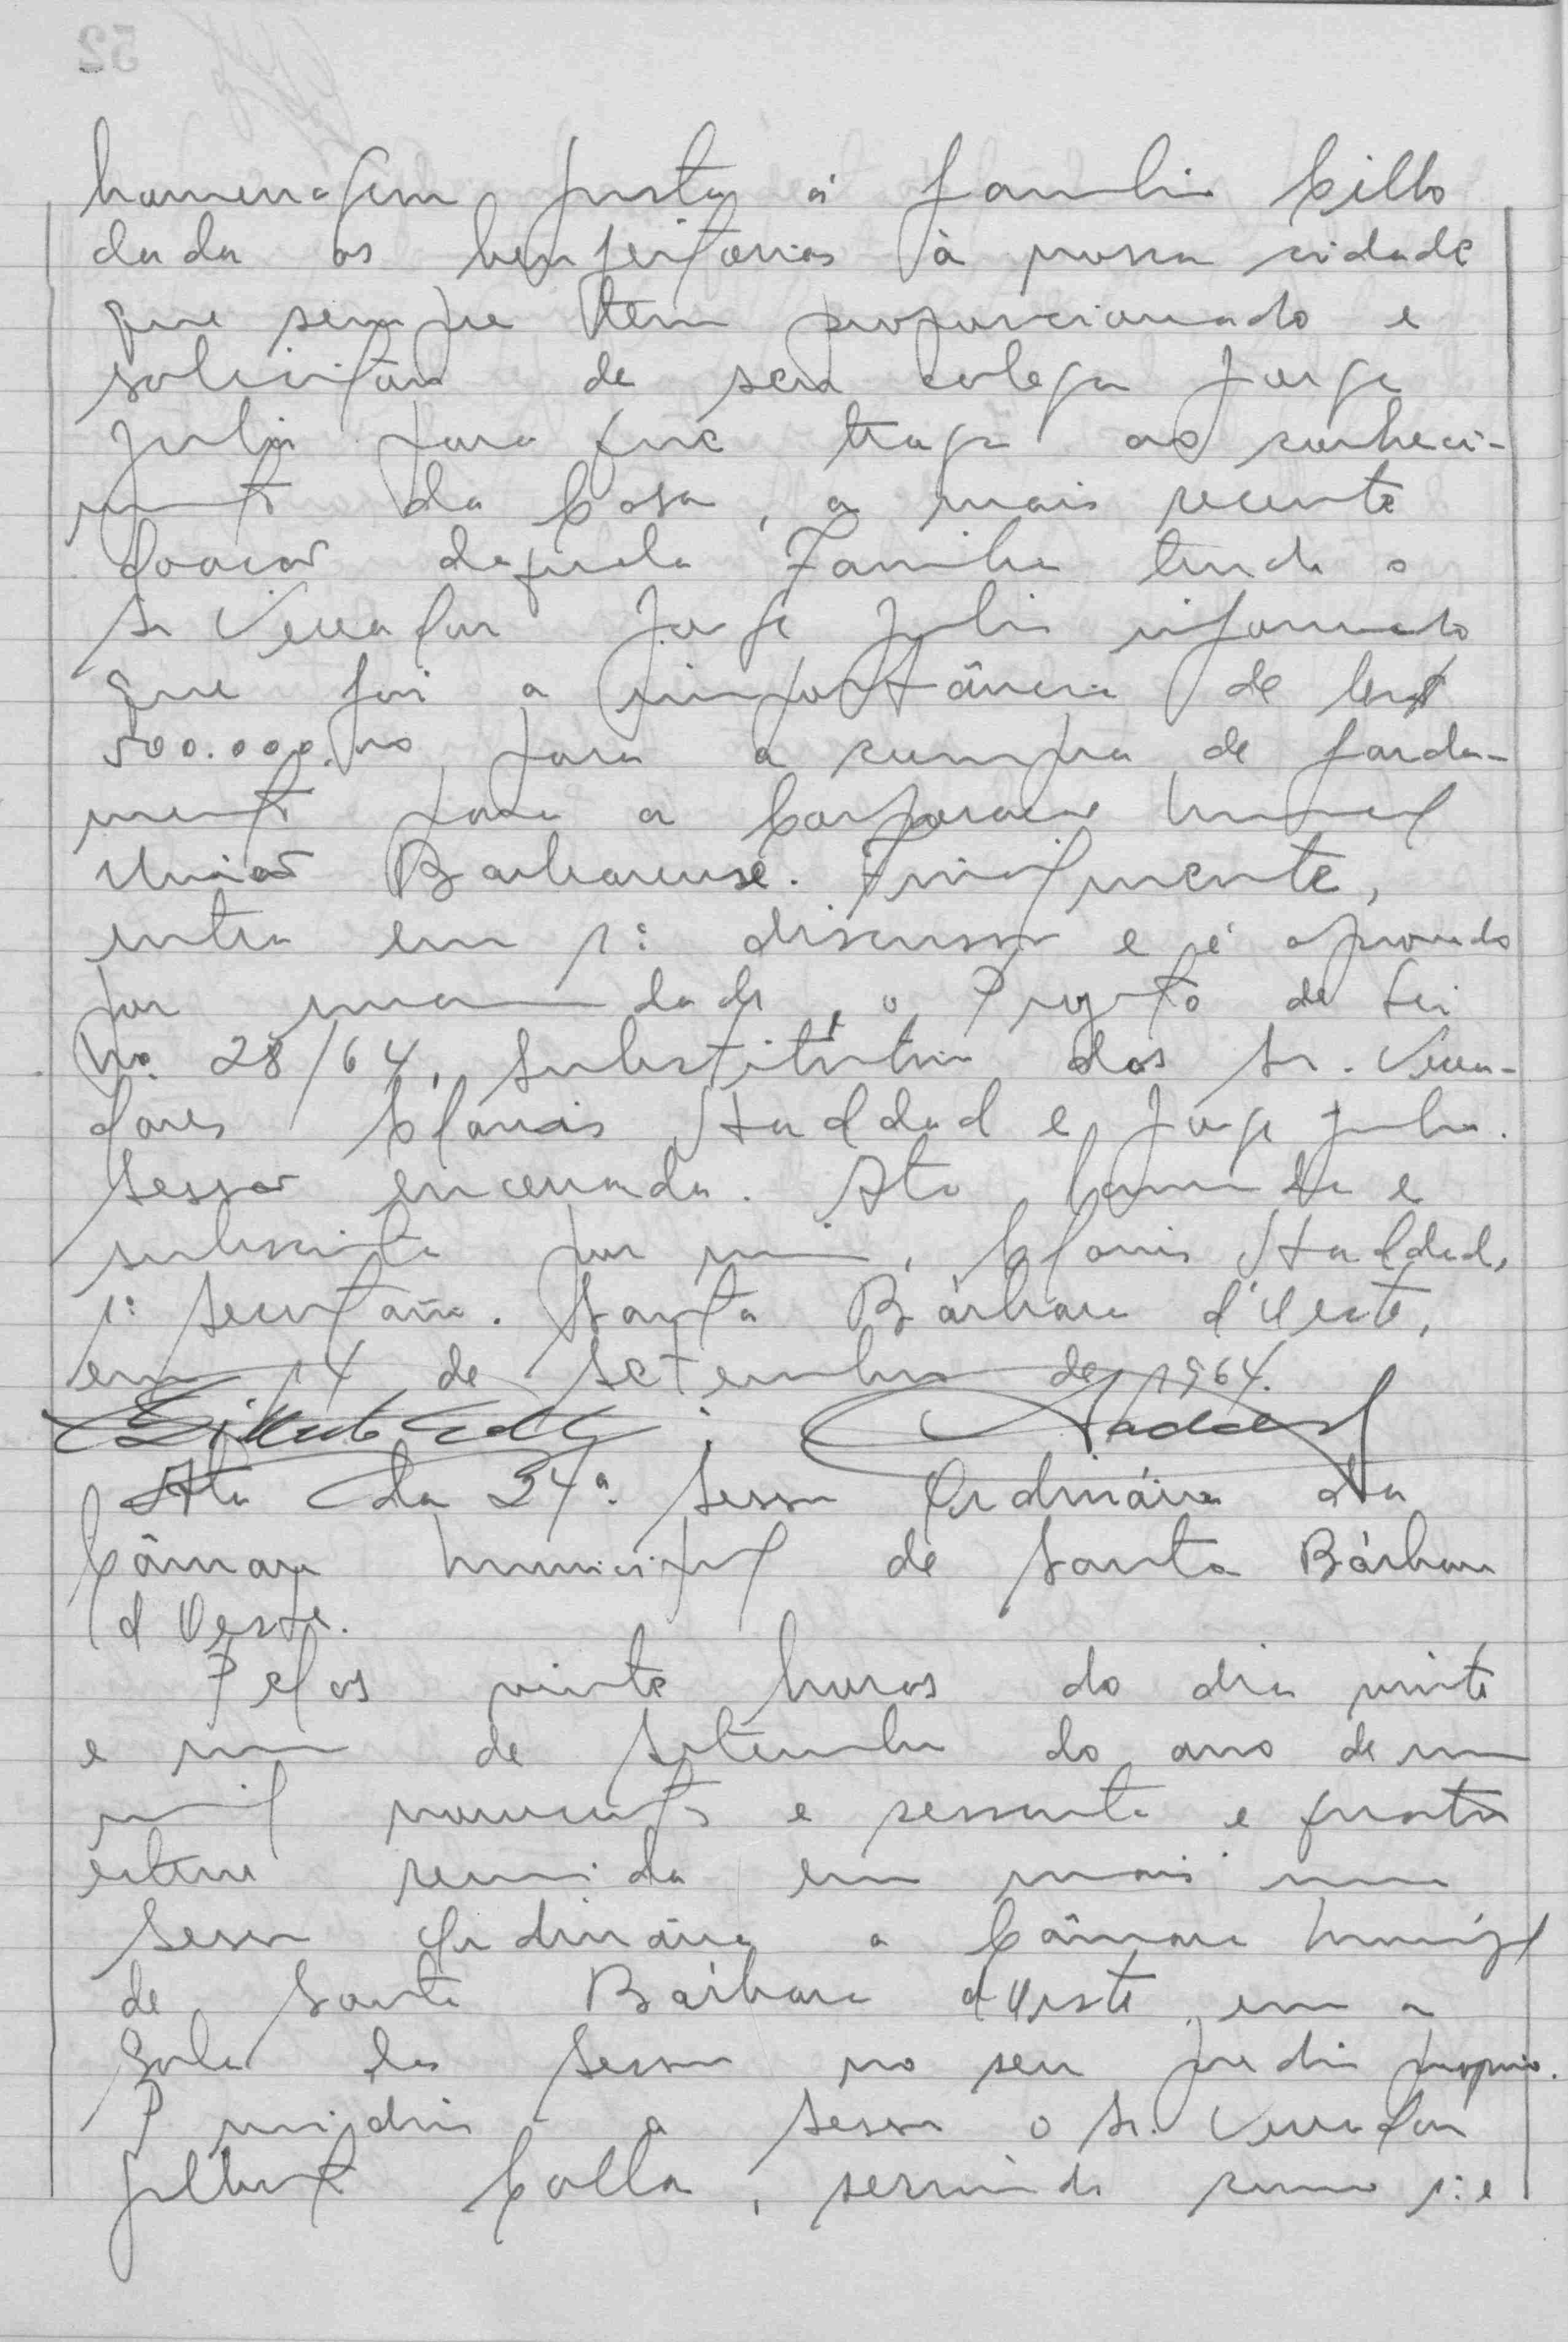 homenagem justa à familia Cillo
dada as benfeitorias à nossa cidade
que sempre tem proporcionado e
solicitara de seu colega Jorge
Julio para que traga ao conheci-
mento da Casa, a mais recente
doação daquela Familia tendo o
Sr Vereador Jorge Julio informado
que foi a importância de Cr$
500.000,00 para a compra de farda-
mento para a Corporação Musical
União Barbarense. Finalmente,
entra em 1ª discussão e é aprovado
por unanimidade, o Projeto de Lei
No. 28/64, substitutivo dos Sr. Verea-
dores Clovis Haddad e Jorge Julio.
Sessão encerrada. Ata lavrada e
subscrita por mim, Clovis Haddad,
1º Secretário. Santa Bárbara d'Oeste,
em 14 de Setembro de 1964.
Haddad
Ata da 34ª. Sessão Ordinária da
Câmara Municipal de Santa Bárbara
d Oeste.
Pelas vinte horas do dia vinte
e um de Setembro do ano de um
mil novecentos e sessenta e quatro
esteve reunida em mais uma
Sessão Ordinária a Câmara Municipal
de Santa Bárbara d'Oeste, em a
Sala das Sessões no seu predio proprio.
Presidiu a Sessão o Sr. Vereador
Gilberto Colla, servindo como 1º e